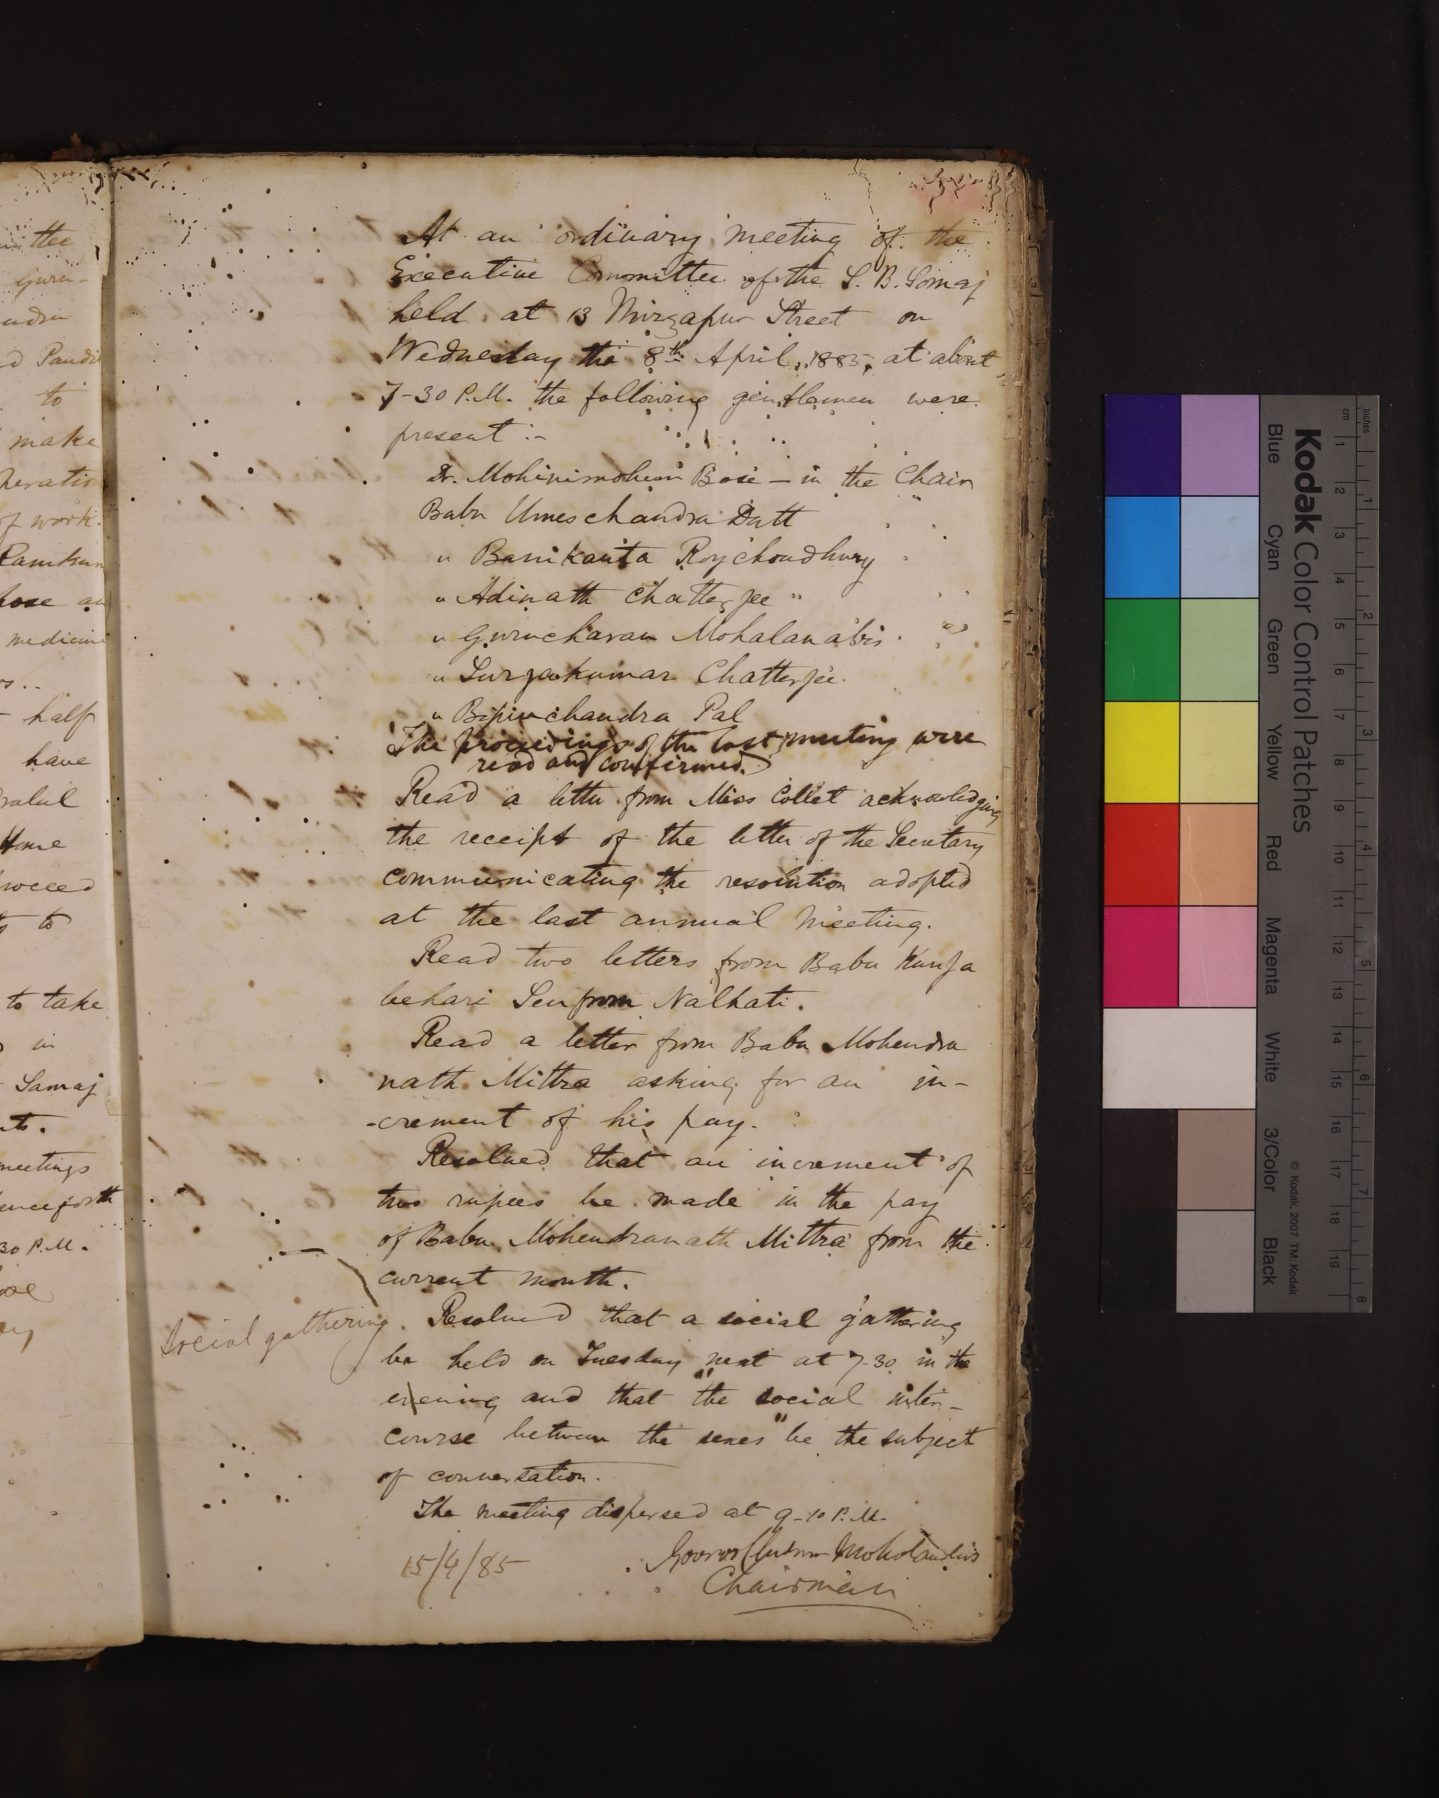 mittee
Guru-
endra
d Pandit
to
make
heratio
of work.
Ramkum
hose an
medicine
rs..
- half
have
Home
roceed
to
to take
in
Samaj
nts.
meetings
enceforth
30 P.M.
At an ordinary meeting of the
Executive Committee of the S. B. Somaj
held at 13 Mirzapur Street on
Wednesday the 8th April, 1885, at about
7-30 P.M. the following gentlemen were
present :-
Dr. Mohinimohun Bose — in the Chair
Babu Umeschandra Datt
" Banikanta Roychoudhury
" Adinath Chatterjee
" Gurucharan Mohalanabis
" Surjakumar Chatterjee
" Bipinchandra Pal
The proceedings of the last meeting were
read and confirmed.
Read a letter from Miss Collet acknowledging
the receipt of the letter of the Secretary
communicating the resolution adopted
at the last annual meeting.
Read two letters from Babu Kunja
behari Sen from Nalhati.
Read a letter from Babu Mohendra
nath Mittra asking for an in-
-crement of his pay.
Resolved that an increment of
two rupees be made in the pay
of Babu Mohendranath Mittra from the
current month.
Social gathering. Resolved that a social gathering
be held on Tuesday next at 7-30 in the
evening and that "the social inter-
course between the sexes" be the subject
of conversation.
The meeting dispersed at 9-10 P.M.
15/4/85
Gooroo Churn Moholanobis
Chairman
Kodak Color Control Patches
Blue Cyan Green Yellow Red Magenta White 3/Color Black
© Kodak, 2007 TM: Kodak
cm 1 2 3 4 5 6 7 8 9 10 11 12 13 14 15 16 17 18 19
inches 1 2 3 4 5 6 7 8